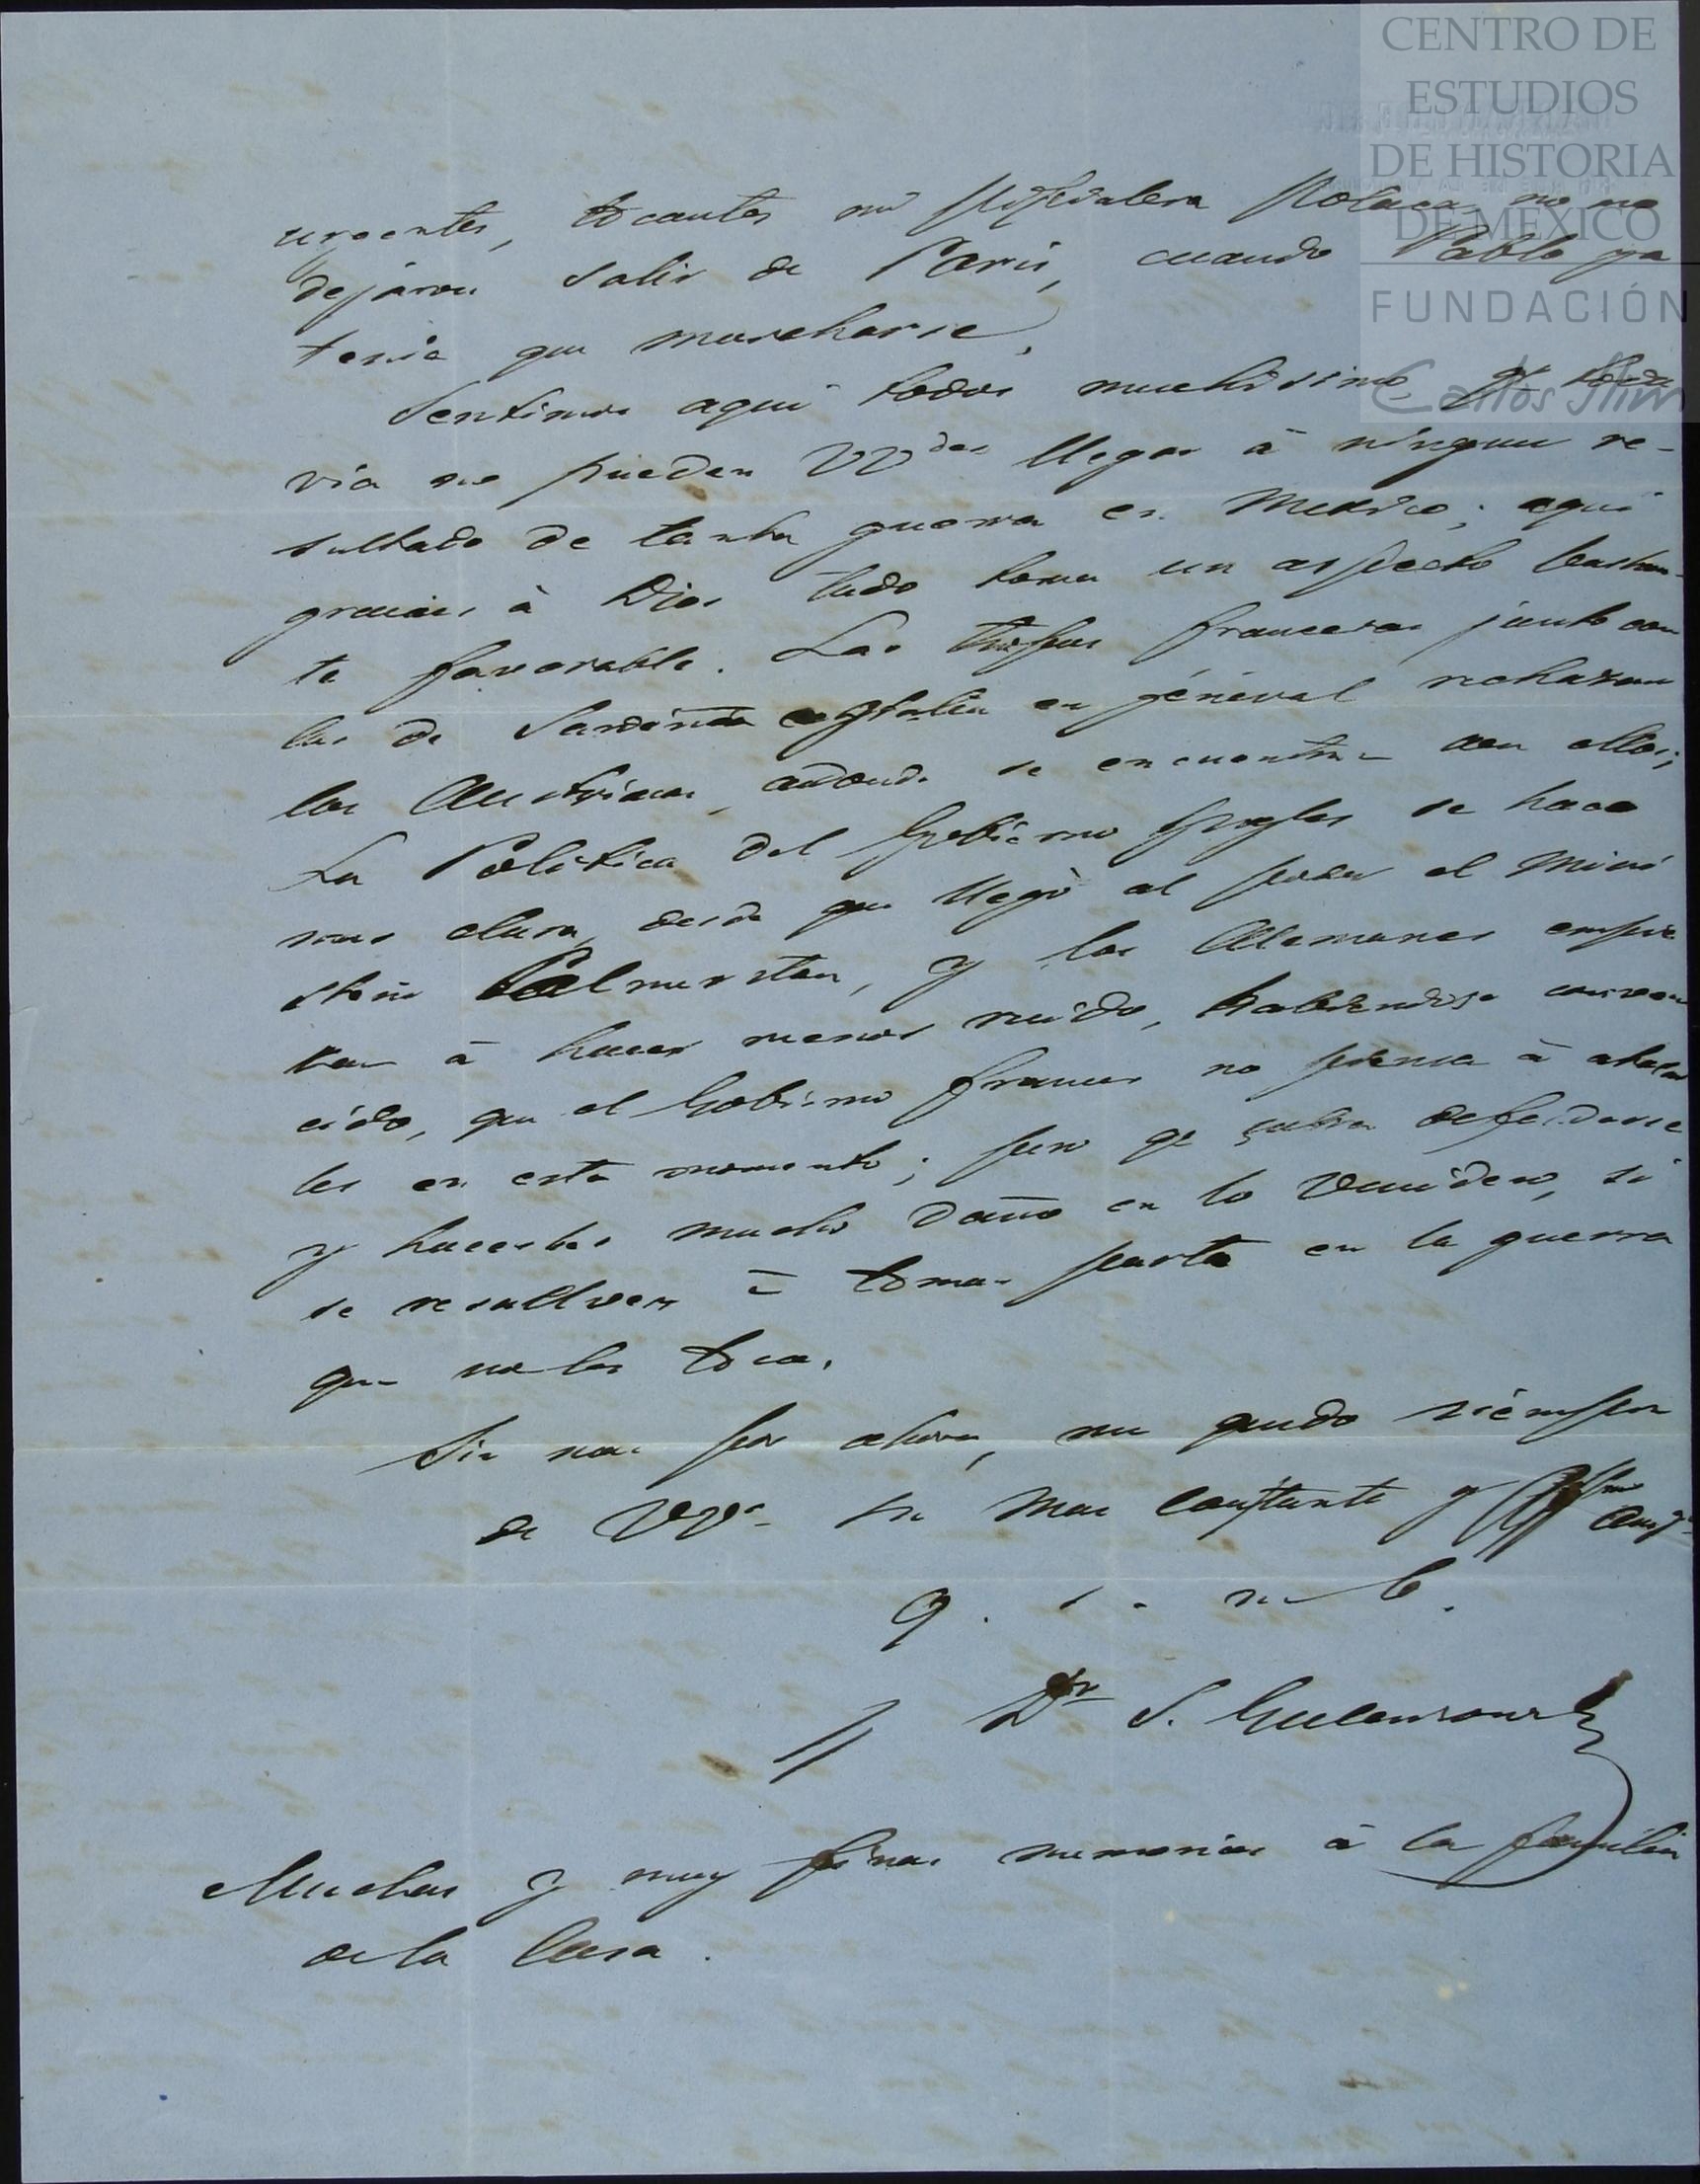 CENTRO DE
ESTUDIOS
DE HISTORIA
DE MÉXICO
FUNDACIÓN
Carlos Slim
urgentes, tocantes mi no me
dejáron salir de Paris, cuando Pablo ya
tenia que marcharse.
Sentimos aqui todos muchisimo qe toda
via no pueden VVdes llegar à ningun re-
sultado de tanta guerra en Mexico; aqui
gracias à Dios todo toma un aspecto bastan-
te favorable. Las tropas francesas junto con
las de Sardinia en général rechazan
los Austriacos, adonde se encuentran con ellos;
La Politica del Gobierno Ingles se hace
mas clara, desde que llegò al poder el Mini
sterio Palmerston, y los Alemanes empie
zan à hacer menos ruido, habiendose conven
cido, que el Gobierno frances no piensa à atacar
les en este momento; pero qe sabra defendarse
y hacerles mucho daño en lo venidero, si
se resuelven à tomar parte en la guerra
que no les toca.
Sin mas por ahora, me quedo siempre
de VVs su mas constante y Amgo
q. s. m. b.
Dr S.
Muchas y muy finas memorias à la familia
de la Casa.